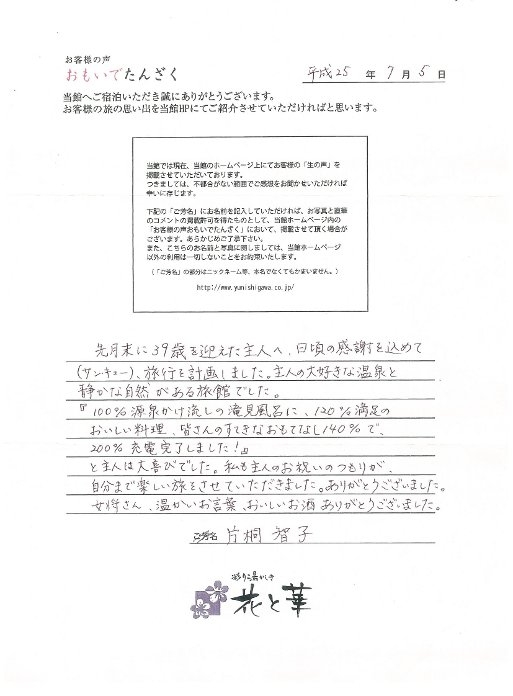 お客様の声
おもいでたんざく
平成25 年 7 月 5 日
当館へご宿泊いただき誠にありがとうございます。
お客様の旅の思い出を当館HPにてご紹介させていただければと思います。
当館では現在、当館のホームページ上にてお客様の「生の声」を
掲載させていただいております。
つきましては、不都合がない範囲でご感想をお聞かせいただければ
幸いに存じます。
下記の「ご芳名」にお名前を記入していただければ、お写真と直筆
のコメントの掲載許可を得たものとして、当館ホームページ内の
「お客様の声おもいでたんざく」において、掲載させて頂く場合が
ございます。あらかじめご了承下さい。
また、こちらのお名前と写真に関しましては、当館ホームページ
以外の利用は一切しないことをお約束いたします。
(「ご芳名」の部分はニックネーム等、本名でなくてもかまいません。)
http://www.yunishigawa.co.jp/
先月末に39歳を迎えた主人へ、日頃の感謝を込めて
(サンキュー)、旅行を計画しました。主人の大好きな温泉と
静かな自然がある旅館でした。
『100%源泉かけ流しの滝見風呂に、120%満足の
おいしい料理、皆さんのすてきなおもてなし140%で、
200%充電完了しました!』
と主人は大喜びでした。私も主人のお祝いのつもりが、
自分まで楽しい旅をさせていただきました。ありがとうございました。
女将さん、温かいお言葉、おいしいお酒ありがとうございました。
ご芳名 片桐 智子
彩り湯かしき
花と華